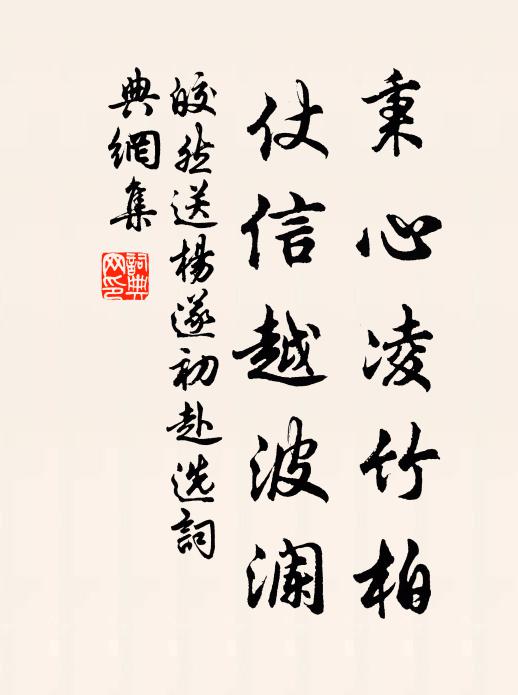 秉心凌竹柏
仗信越波澜
皎然送楊遂初赴选詞
典網集
詞典网印